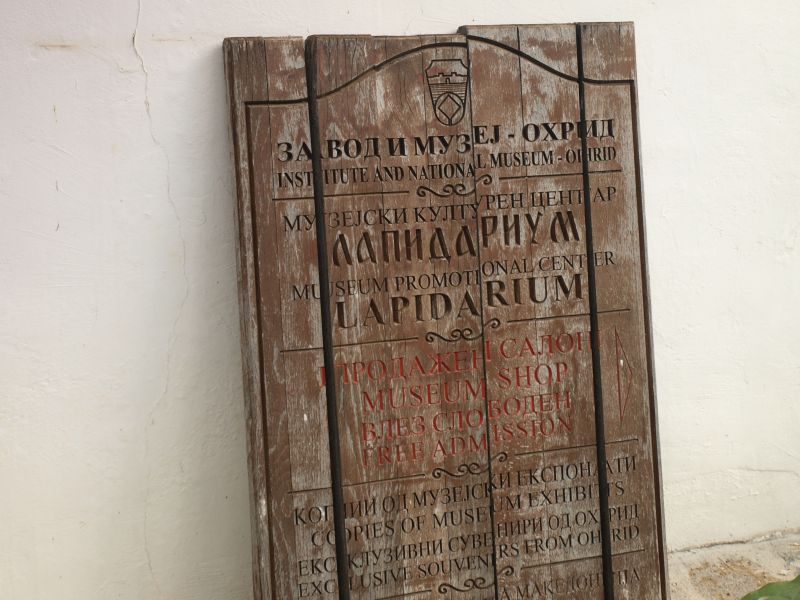 ЗАВОД И МУЗЕЈ - ОХРИД
INSTITUTE AND NATIONAL MUSEUM - OHRID
МУЗЕЈСКИ КУЛТУРЕН ЦЕНТАР
ЛАПИДАРИУМ
MUSEUM PROMOTIONAL CENTER
LAPIDARIUM
ПРОДАЖЕН САЛОН
MUSEUM SHOP
ВЛЕЗ СЛОБОДЕН
FREE ADMISSION
КОПИИ ОД МУЗЕЈСКИ ЕКСПОНАТИ
COPIES OF MUSEUM EXHIBITS
ЕКСКЛУЗИВНИ СУВЕНИРИ ОД ОХРИД
EXCLUSIVE SOUVENIRS FROM OHRID